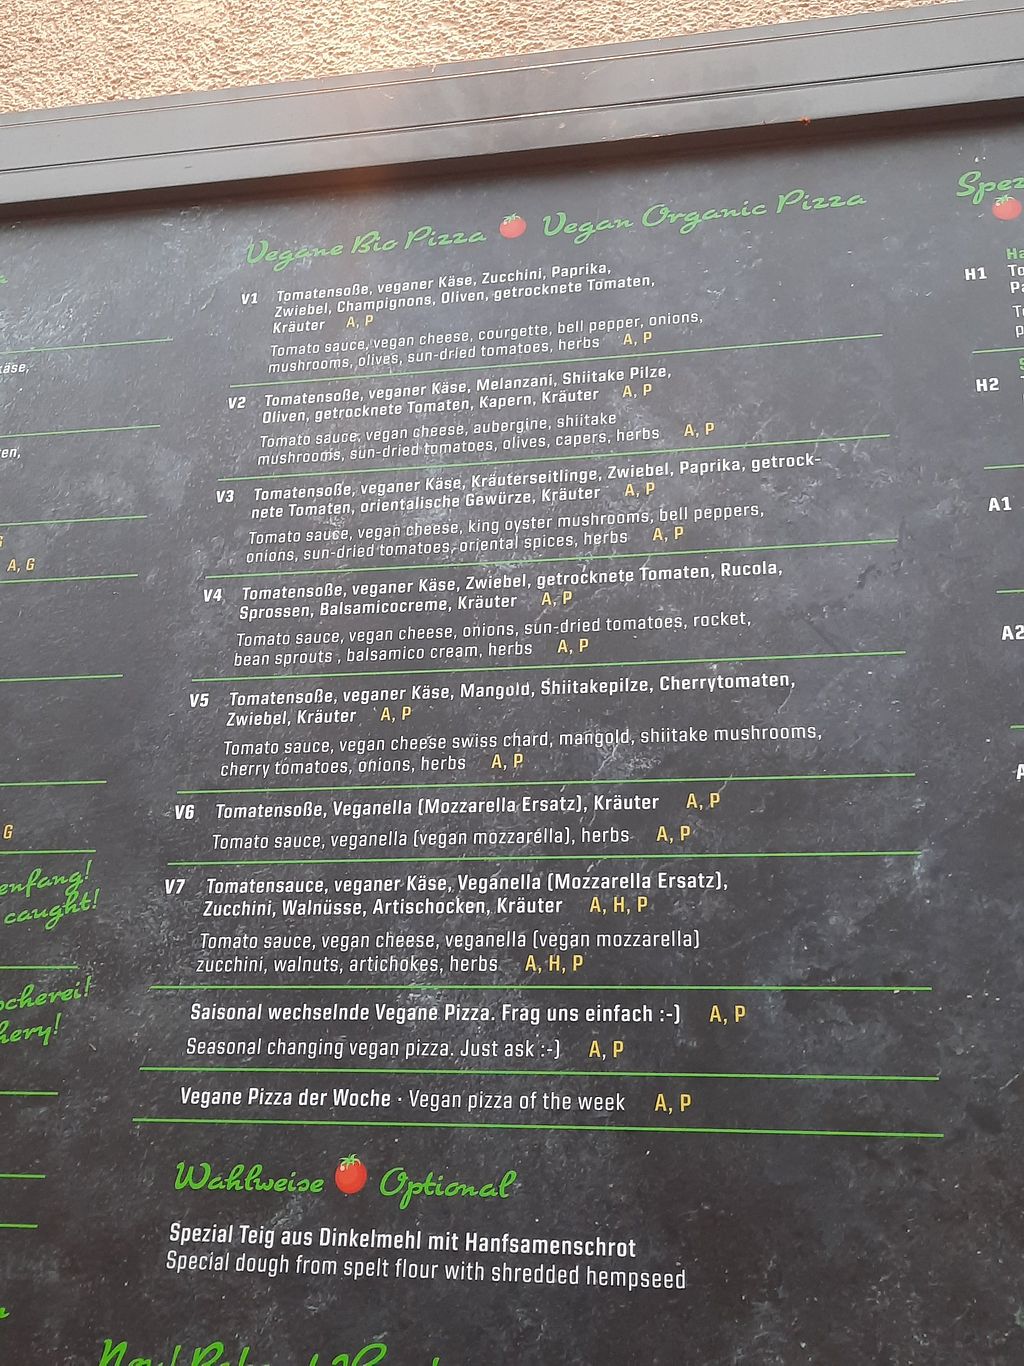 Vegane Bio Pizza Vegan Organic Pizza
V1 Tomatensoße, veganer Käse, Zucchini, Paprika,
Zwiebel, Champignons, Oliven, getrocknete Tomaten,
Kräuter A, P
Tomato sauce, vegan cheese, courgette, bell pepper, onions,
mushrooms, olives, sun-dried tomatoes, herbs A, P
V2 Tomatensoße, veganer Käse, Melanzani, Shiitake Pilze,
Oliven, getrocknete Tomaten, Kapern, Kräuter A, P
Tomato sauce, vegan cheese, aubergine, shiitake
mushrooms, sun-dried tomatoes, olives, capers, herbs A, P
V3 Tomatensoße, veganer Käse, Kräuterseitlinge, Zwiebel, Paprika, getrock-
nete Tomaten, orientalische Gewürze, Kräuter A, P
Tomato sauce, vegan cheese, king oyster mushrooms, bell peppers,
onions, sun-dried tomatoes, oriental spices, herbs A, P
V4 Tomatensoße, veganer Käse, Zwiebel, getrocknete Tomaten, Rucola,
Sprossen, Balsamicocreme, Kräuter A, P
Tomato sauce, vegan cheese, onions, sun-dried tomatoes, rocket,
bean sprouts , balsamico cream, herbs A, P
V5 Tomatensoße, veganer Käse, Mangold, Shiitakepilze, Cherrytomaten,
Zwiebel, Kräuter A, P
Tomato sauce, vegan cheese swiss chard, mangold, shiitake mushrooms,
cherry tomatoes, onions, herbs A, P
V6 Tomatensoße, Veganella (Mozzarella Ersatz), Kräuter A, P
Tomato sauce, veganella (vegan mozzarella), herbs A, P
V7 Tomatensauce, veganer Käse, Veganella (Mozzarella Ersatz),
Zucchini, Walnüsse, Artischocken, Kräuter A, H, P
Tomato sauce, vegan cheese, veganella (vegan mozzarella)
zucchini, walnuts, artichokes, herbs A, H, P
Saisonal wechselnde Vegane Pizza. Frag uns einfach :-) A, P
Seasonal changing vegan pizza. Just ask :-) A, P
Vegane Pizza der Woche · Vegan pizza of the week A, P
Wahlweise Optional
Spezial Teig aus Dinkelmehl mit Hanfsamenschrot
Special dough from spelt flour with shredded hempseed
A, G
G
caught!
H1
H2
A1
A2